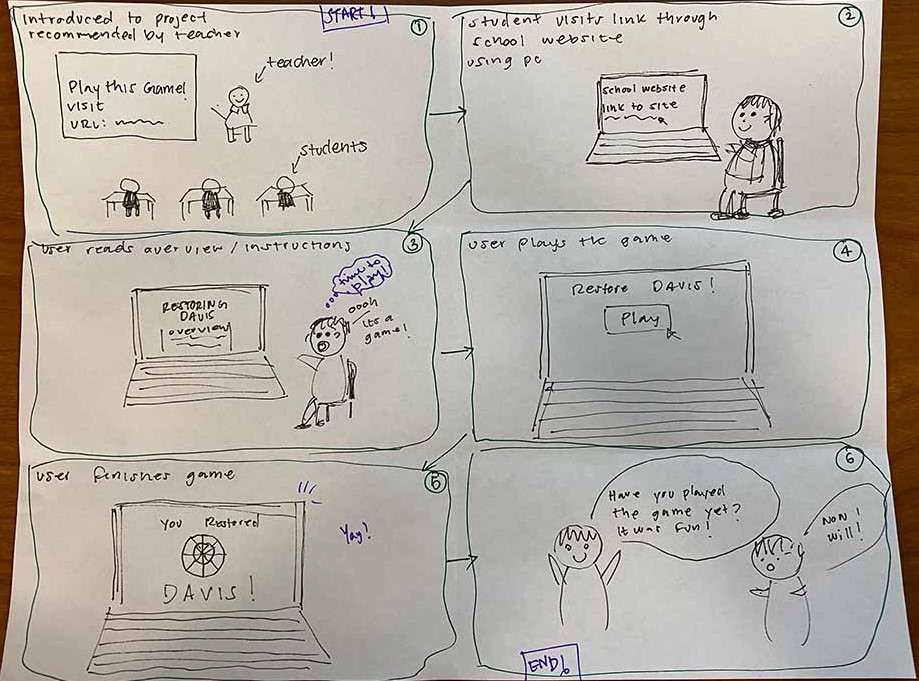 Introduced to project
recommended by teacher
START!
①
Play this Game!
visit
URL:
teacher!
students
student visits link through
school website
using pc
②
school website
link to site
user reads overview / instructions
③
RESTORING
DAVIS
overview
time to
play!
oooh
its a
game!
user plays the game
④
Restore DAVIS!
Play
user finishes game
⑤
You Restored
DAVIS!
Yay!
⑥
Have you played
the game yet?
It was fun!
Now I
will!
END!